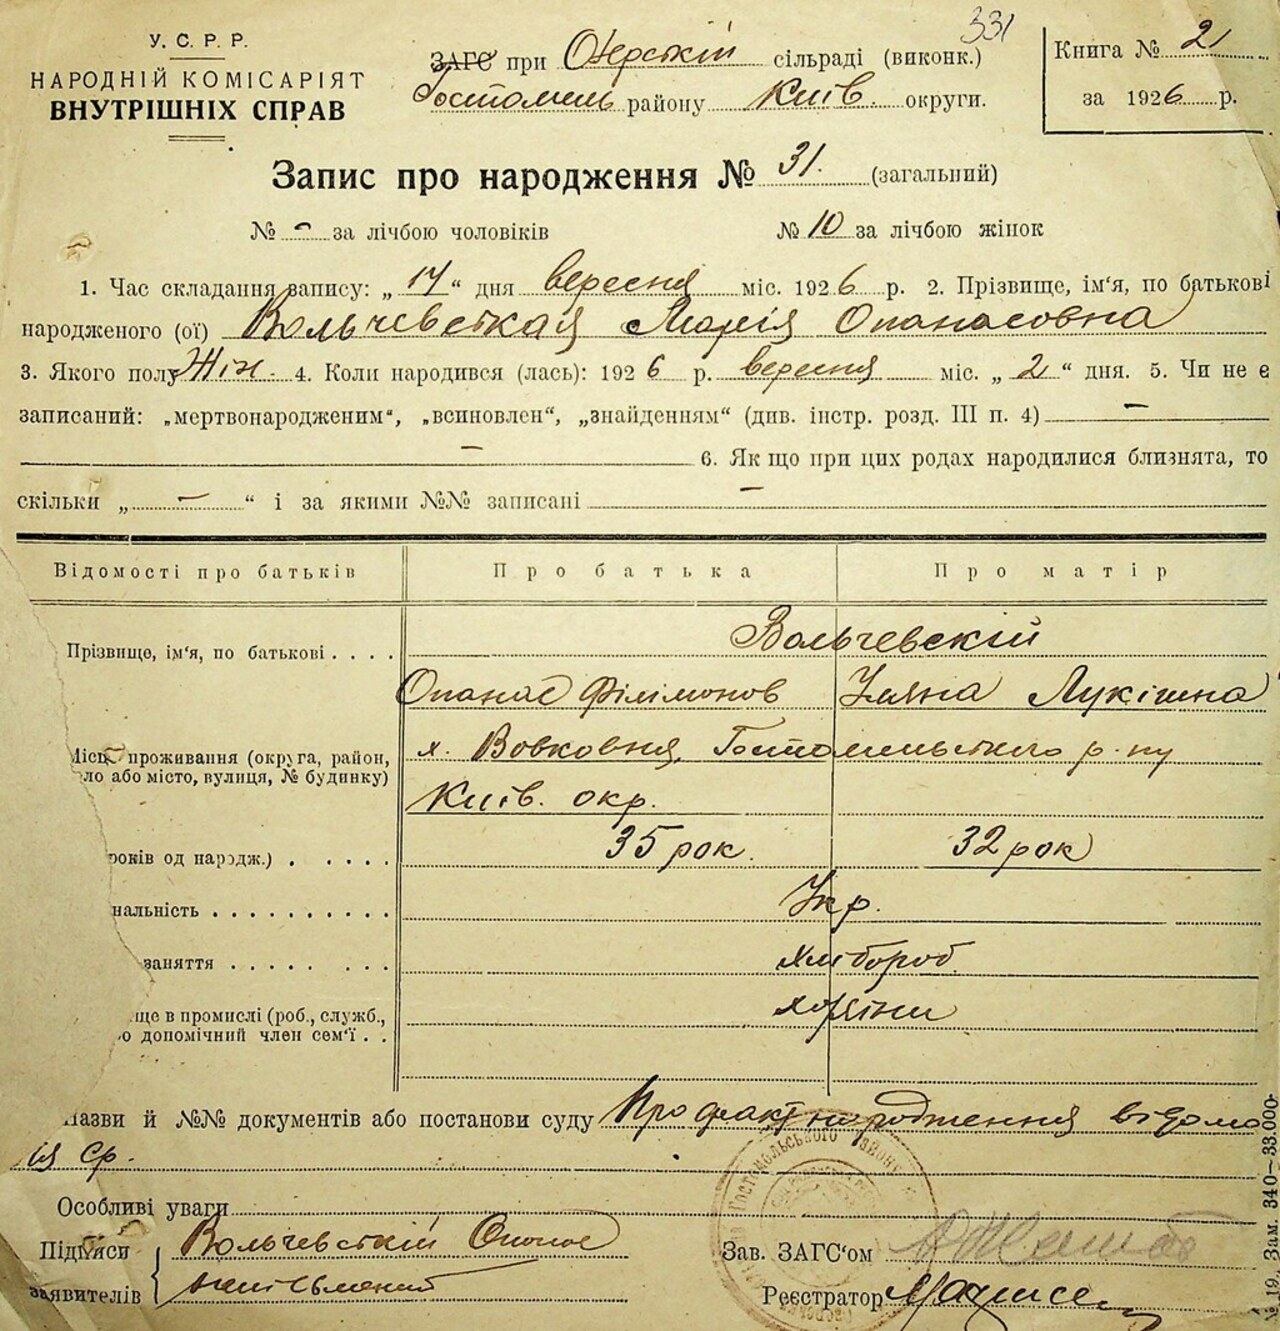 331
У. С. Р. Р.
НАРОДНІЙ КОМІСАРІЯТ
ВНУТРІШНІХ СПРАВ
ЗАГС при Озерській сільраді (виконк.)
Гостомель району Київ. округи.
Книга № 2
за 1926 р.
Запис про народження № 31. (загальний)
№ - за лічбою чоловіків № 10 за лічбою жінок
1. Час складання запису: „ 14 “ дня вересня міс. 1926 р. 2. Прізвище, ім‘я, по батькові
народженого (ої) Вольчевская Марія Опанасовна
3. Якого полу Жін. 4. Коли народився (лась): 1926 р. вересня міс. „ 2 “ дня. 5. Чи не є
записаний: „мертвонародженим“, „всиновлен“, „знайденням“ (див. інстр. розд. III п. 4) —
— 6. Як що при цих родах народилися близнята, то
скільки „ — “ і за якими №№ записані —
Відомості про батьків Про батька Про матір
Прізвище, ім‘я, по батькові . . . . Вольчевскій
Опанас Філімонов Уляна Лукішна
Місце проживання (округа, район, х. Вовковня, Гостомельського р-ну
ло або місто, вулиця, № будинку)
Київ. окр.
років од народж.) . . . . . 35 рок. 32 рок
нальність . . . . . . . . . . Укр.
заняття . . . . . . . . хлібороб.
ще в промислі (роб., служб., хозяїни
о допомічний член сем‘ї . .
Назви й №№ документів або постанови суду Про факт народження відомо
ія ср.
Особливі уваги
Підписи Вольчевській Опанас
заявителів неписьменний
Зав. ЗАГС‘ом
Реєстратор
Гостомельського району
№ 19. Зам. 340—33.000.